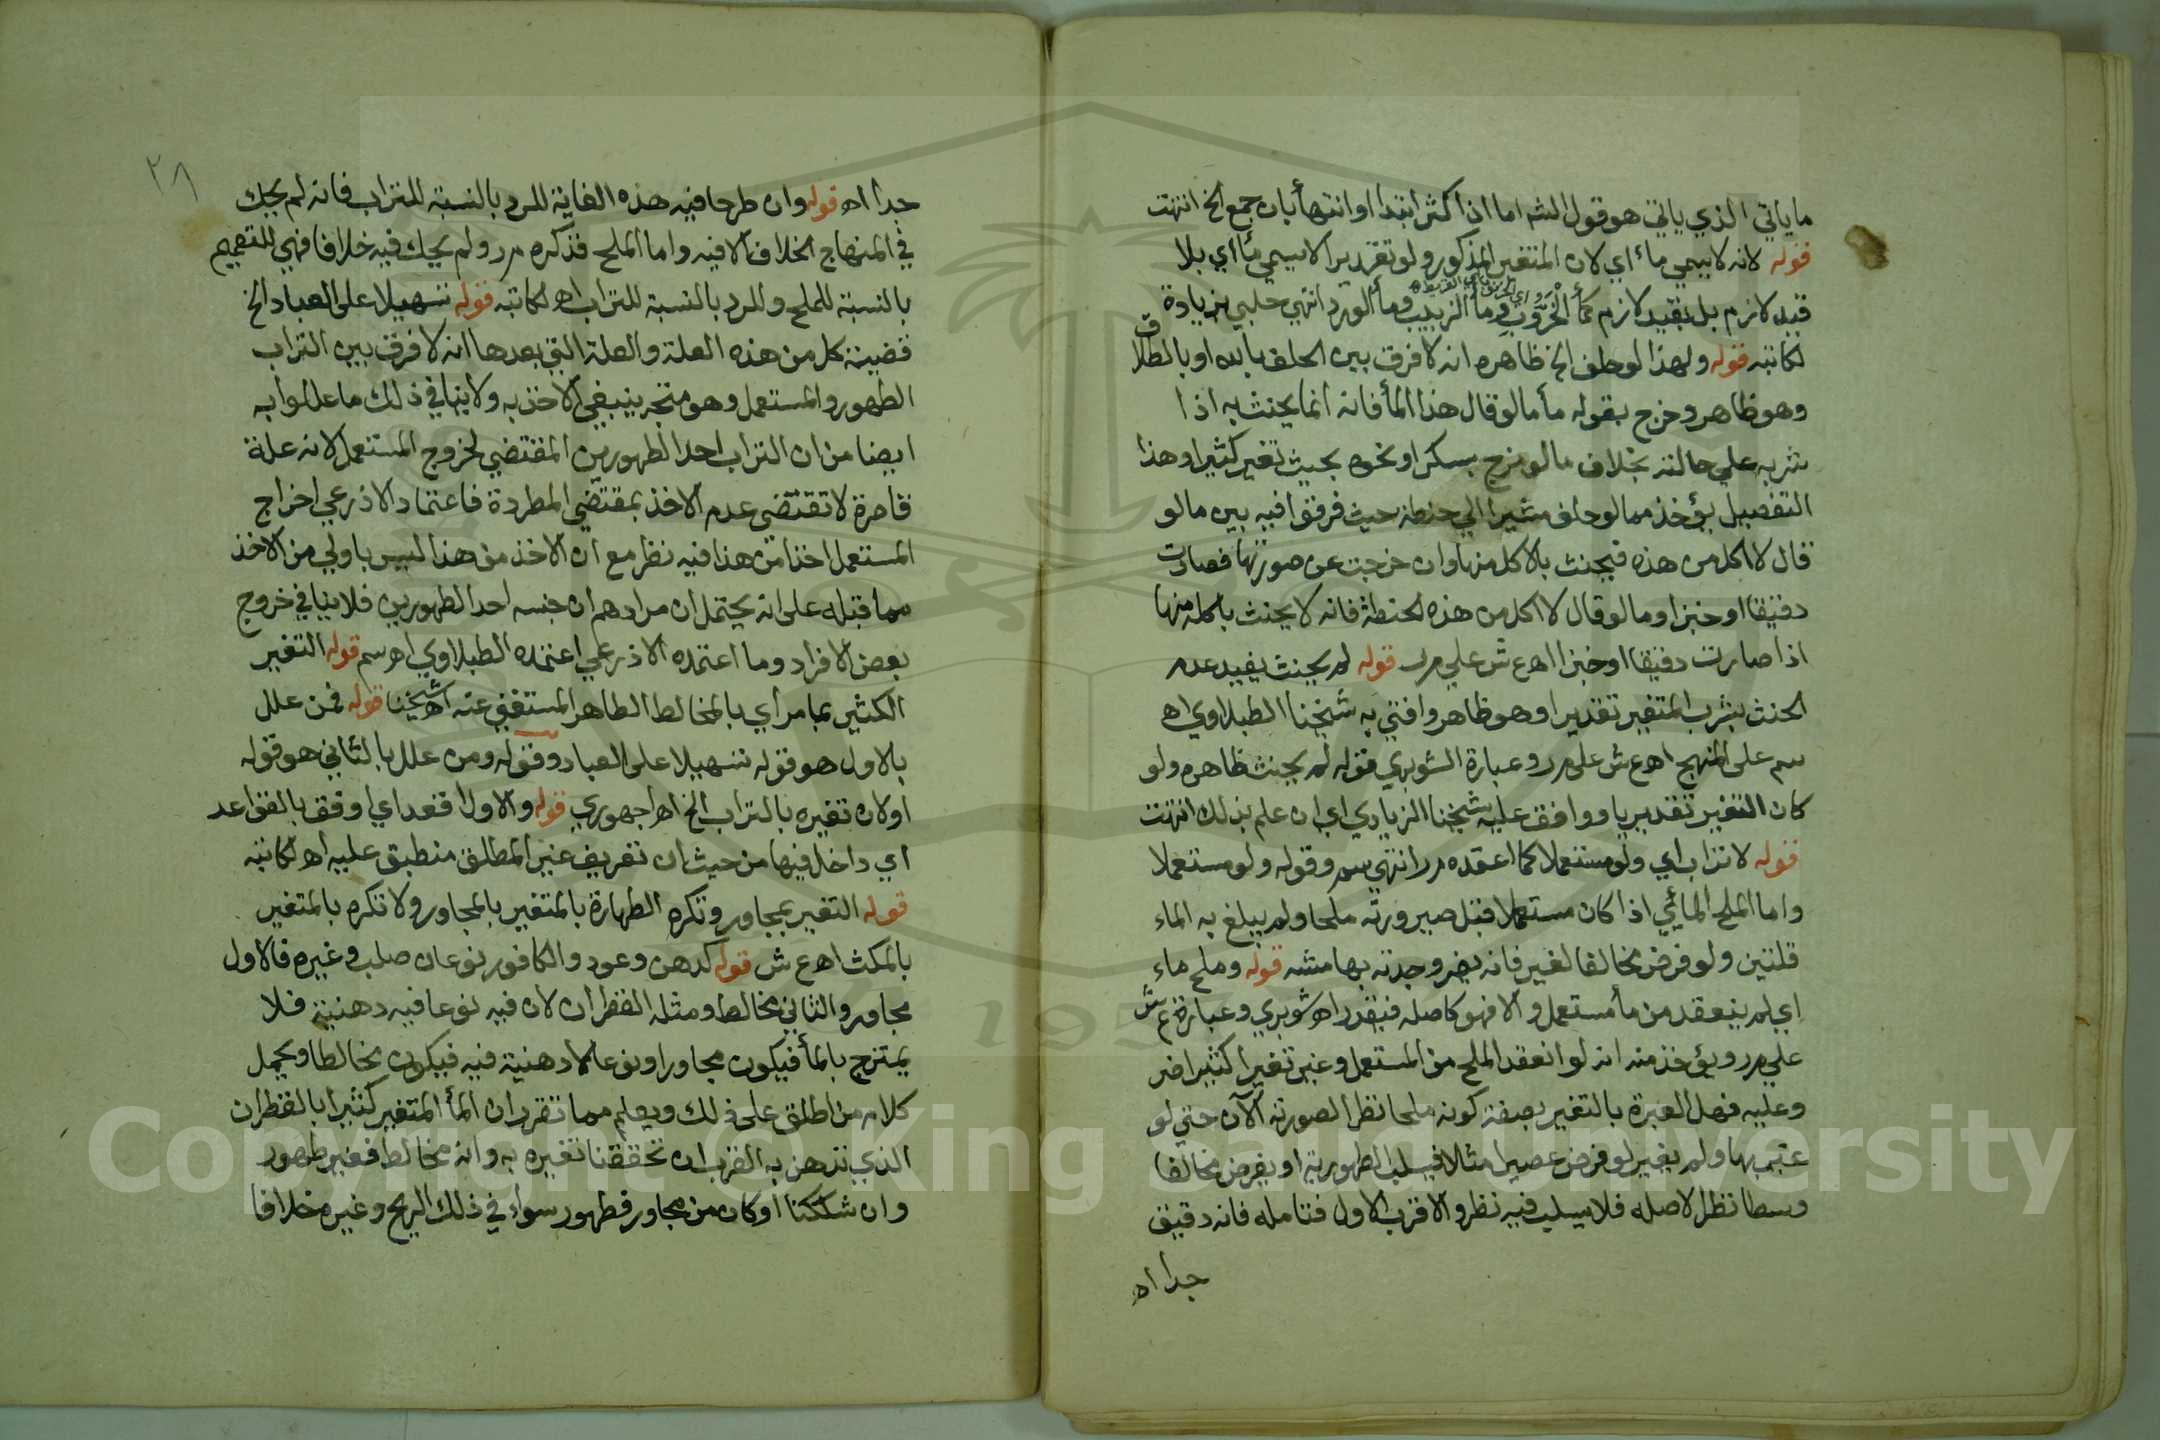 ما ياتي الذي ياتي هو قول الشم اما اذا كثر ابتدا او انتهأ بان جمع الخ انتهت
قوله لانه لا يسمي مأ اي لان المتغير المذكور ولو تقديرا لا يسمي مأ اي بلا
قيد لازم بل بقيد لازم كمأ الخروب ومأ الزبيب ومأ الورد انتهي حلبي بزيادة
لكاتبه قوله ولهذا لو حلف الخ ظاهره انه لا فرق بين الحلف بالله او بالطلاق
وهو ظاهر وخرج بقوله مأ ما لو قال هذا المأ فانه انما يحنث به اذا
شربه علي حالته بخلاف ما لو مزج بسكر او نحوه بحيث تغير كثيرا وهذا
التفصيل يؤخذ مما لو حلف مشيرا الي حنطة حيث فرقوا فيه بين ما لو
قال لا اكل من هذه فيحنث بالاكل منها وان خرجت عن صورتها فصارت
دقيقا او خبزا وما لو قال لا اكل من هذه الحنطة فانه لا يحنث باكله منها
اذا صارت دقيقا او خبزا اه ع ش علي م ر قوله لم يحنث يفيد عدم
الحنث بشرب المتغير تقديرا وهو ظاهر وافتي به شيخنا الطبلاوي اه
سم على المنهج اه ع ش على م ر وعبارة الشوبري قوله لم يحنث ظاهره ولو
كان التغير تقديريا ووافق عليه شيخنا الزيادي اي ان علم بذلك انتهت
قوله لا تراب اي ولو مستعملا كما اعتمده م ر انتهي سم وقوله ولو مستعملا
واما الملح المائي اذا كان مستعملا قبل صيرورته ملحا ولم يبلغ به الماء
قلتين ولو فرض مخالفا لغير فانه يضر وجدته بهامشه قوله وملح ماء
اي لم ينعقد من مأ مستعمل والا فهو كاصله فيقدر اه شوبري وعبارة ع ش
علي م ر ويؤخذ منه انه لو انعقد الملح من المستعمل وغير تغيرا كثيرا ضر
وعليه فهل العبرة بالتغير بصفة كونه ملحا نظرا لصورته الآن حتي لو
غير بها ولم يغير لو فرض عصيرا مثلا فيسلب الطهورية او يفرض مخالفا
وسطا نظرا لاصله فلا يسلب فيه نظر والاقرب الاول فتامله فانه دقيق
جدا اه
٢٨
جدا اه قوله وان طرحا فيه هذه الغاية للرد بالنسبة للتراب فانه لم يحك
في المنهاج الخلاف الا فيه واما الملح فذكره م ر ولم يحك فيه خلافا فهي للتعميم
بالنسبة للملح وللرد بالنسبة للتراب اه لكاتبه قوله تسهيلا على العباد الخ
قضية كل من هذه العلة والعلة التي بعدها انه لا فرق بين التراب
الطهور والمستعمل وهو متجه ينبغي الاخذ به ولا ينافي ذلك ما عللوا به
ايضا من ان التراب احد الطهورين المقتضي لخروج المستعمل لانه علة
قاصرة لا تقتضي عدم الاخذ بمقتضي المطردة فاعتماد الاذرعي اخراج
المستعمل اخذا من هذا فيه نظر مع ان الاخذ من هذا ليس باولي من الاخذ
مما قبله على انه يحتمل ان مرادهم ان جنسه احد الطهورين فلا ينافي خروج
بعض الافراد وما اعتمده الاذرعي اعتمده الطبلاوي اه سم قوله التغير
الكثير بما مر اي بالمخالط الطاهر المستغني عنه اه شيخنا قوله فمن علل
بالاول هو قوله تسهيلا على العباد وقوله ومن علل بالثاني هو قوله
او لان تغيره بالتراب الخ اه اجهوري قوله والاول اقعد اي اوفق بالقواعد
اي داخل فيها من حيث ان تعريف غير المطلق منطبق عليه اه لكاتبه
قوله التغير بمجاور وتكره الطهارة بالمتغير بالمجاور ولا تكره بالمتغير
بالمكث اه ع ش قوله كدهن وعود والكافور نوعان صلب وغيره فالاول
مجاور والثاني مخالط ومثله القطران لان فيه نوعا فيه دهنية فلا
يمتزج بالمأ فيكون مجاورا ونوعا لا دهنية فيه فيكون مخالطا ويحمل
كلام من اطلق على ذلك ويعلم مما تقرر ان المأ المتغير كثيرا بالقطران
الذي تدهن به القرب ان تحققنا تغيره به وانه مخالط فغير طهور
وان شككنا او كان من مجاور فطهور سواء في ذلك الريح وغيره خلافا
Copyright © King Saud University